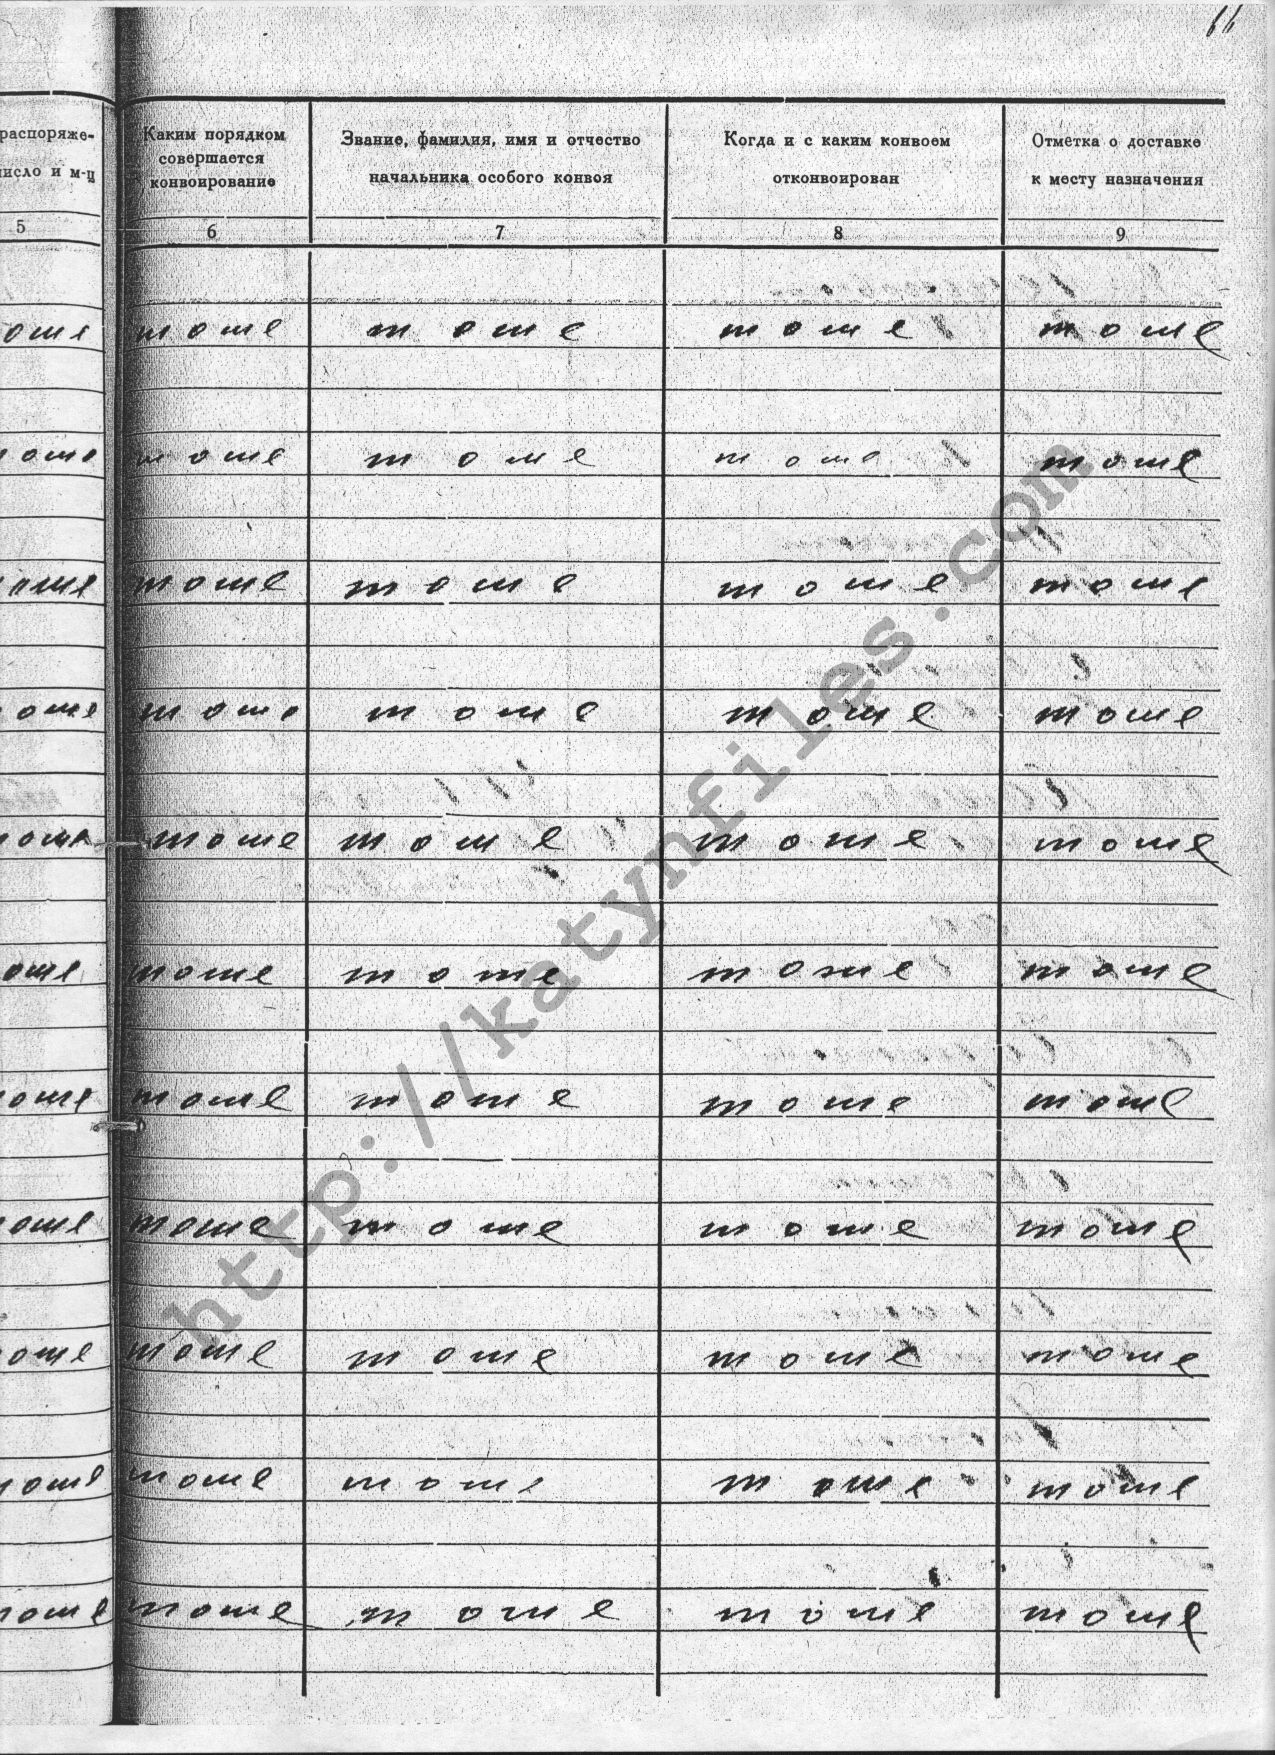 распоряже-
число и м-ц
Каким порядком
совершается
конвоирование
Звание, фамилия, имя и отчество
начальника особого конвоя
Когда и с каким конвоем
отконвоирован
Отметка о доставке
к месту назначения
5 6 7 8 9
оже тоже тоже тоже тоже
тоже тоже тоже тоже тоже
тоже тоже тоже тоже тоже
тоже тоже тоже тоже тоже
тоже тоже тоже тоже тоже
оже тоже тоже тоже тоже
тоже тоже тоже тоже тоже
тоже тоже тоже тоже тоже
тоже тоже тоже тоже тоже
тоже тоже тоже тоже тоже
тоже тоже тоже тоже тоже
http://katynfiles.com